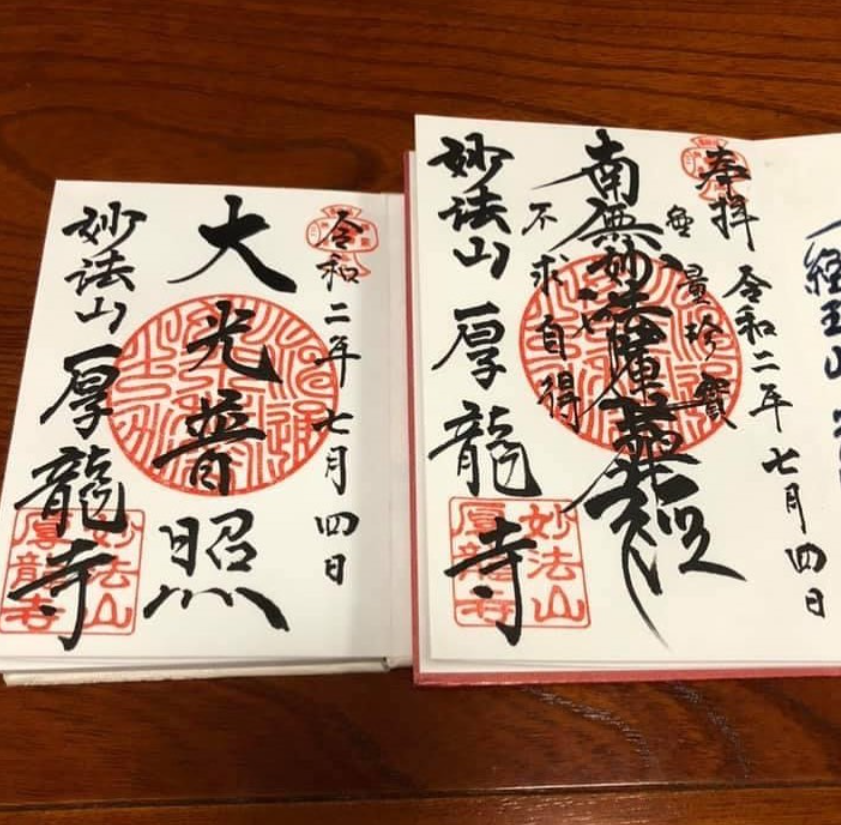 経王山
奉拝
令和二年七月四日
無量珍寶
南無妙法蓮華経
不求自得
妙法山 厚龍寺
妙法山
厚龍寺
令和二年七月四日
大光普照
妙法山 厚龍寺
妙法山
厚龍寺